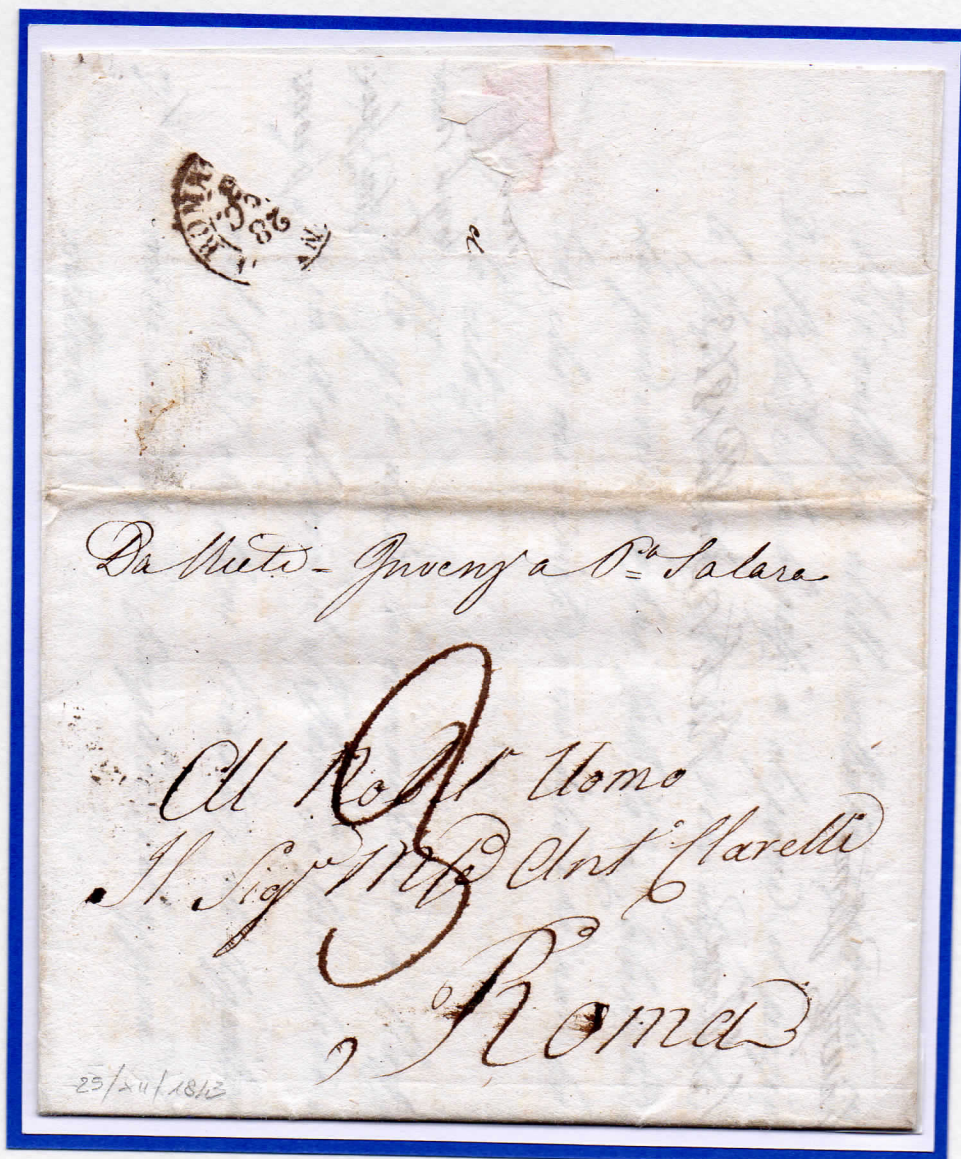 ROMA
28
d
Da Rieti - Invenz a P.ª Salara
3
All Nobil Uomo
Il Sig.r Ant.º Clarelli
Roma
25/XII/1843